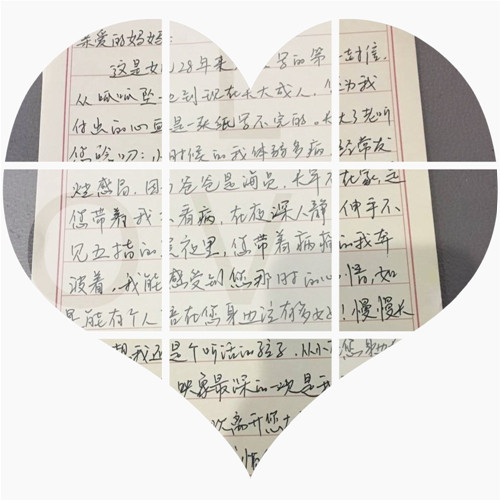 亲爱的妈妈:
这是女儿28年来 写的第一封信,
从呱呱坠 到现在长大成人, 为我
付出的心血是一张纸写不完的。长大了老听
您唠叨:小时候的我体弱多病 经常发
烧感冒,因 爸爸是海员,长年不在家,
您带着我 看病,在夜深人静 伸手不
见五指的黑夜里,您带着病痛的我奔
波着,我能感受到您那时的心情,如
果能有个人 在您身边该有多好!慢慢长
我还是个听话的孩子,从小 您身边
映象最深的一次是
次离开您
情